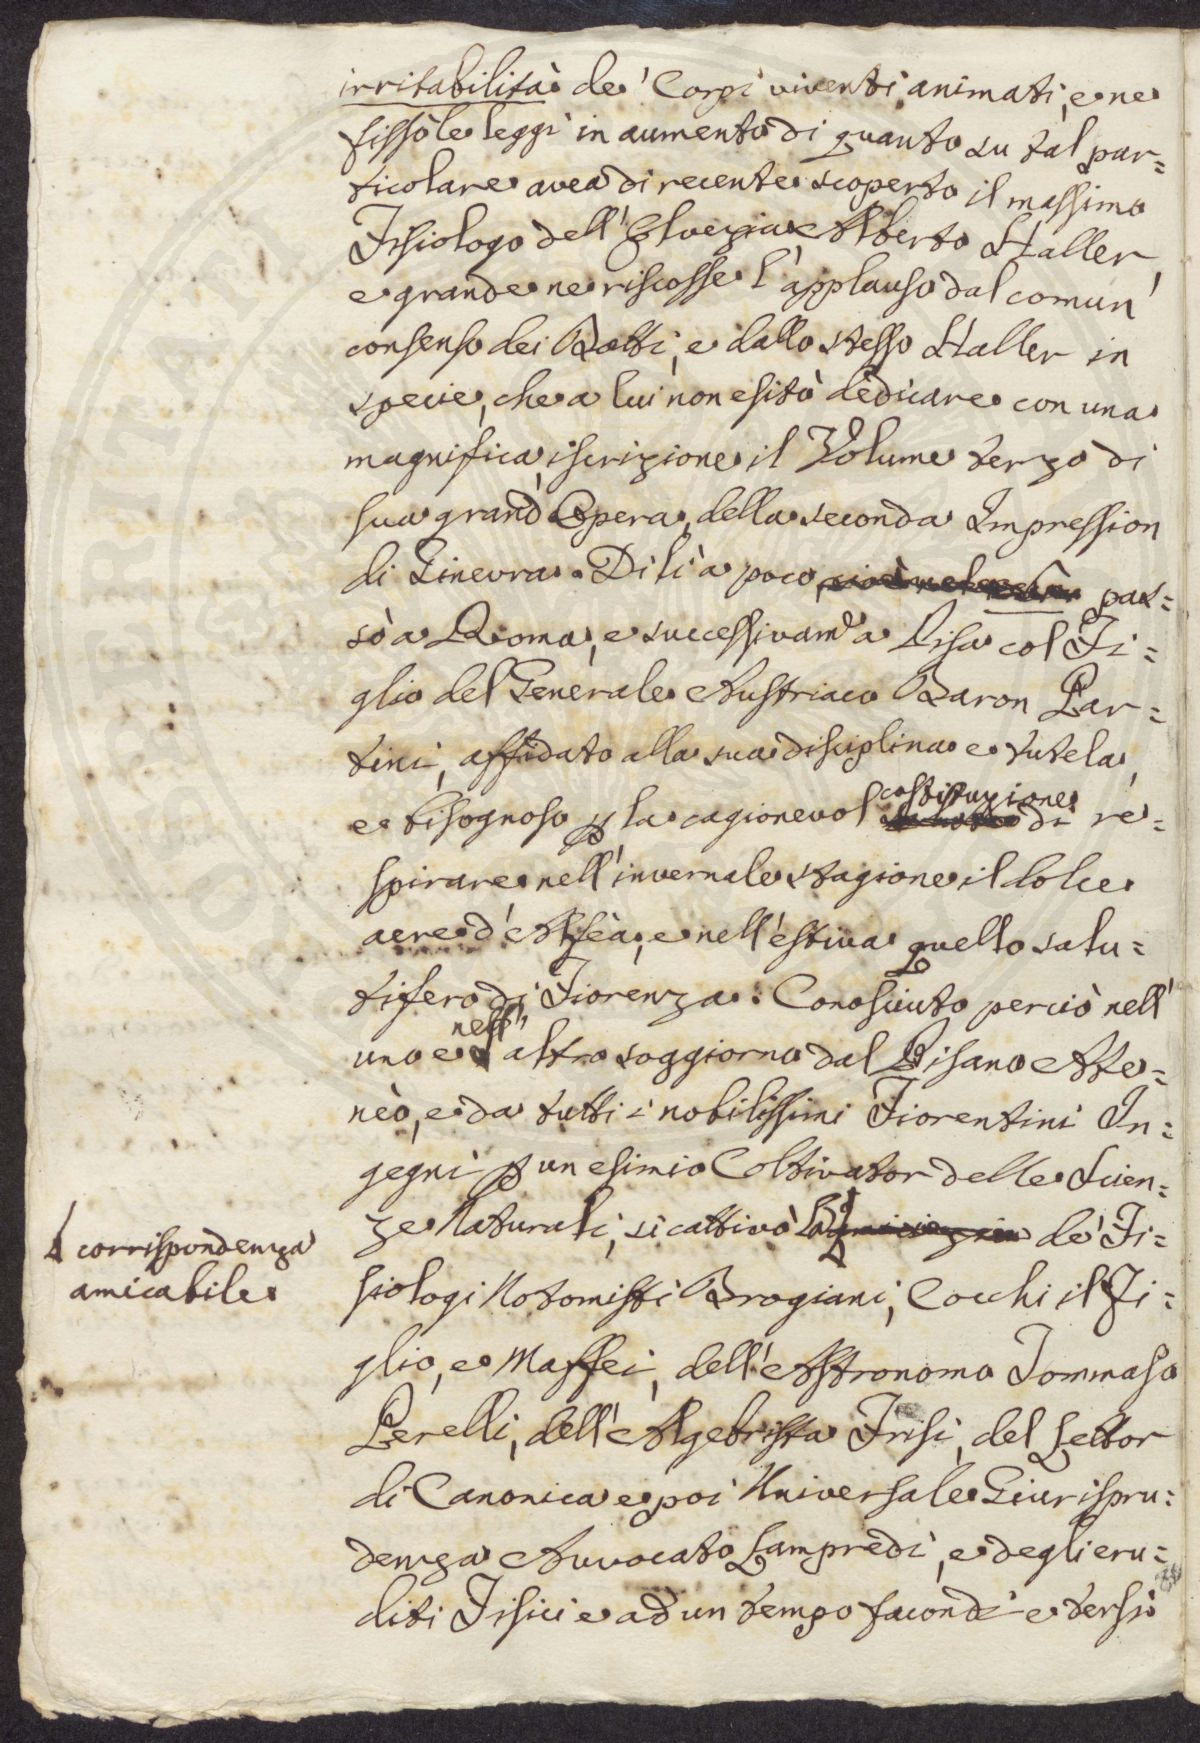 irritabilità de' Corpi viventi animati, e ne
fissò le leggi in aumento di quanto su tal par=
ticolare avea di recente scoperto il massimo
Fisiologo dell'Elvezia Alberto Haller,
e grande ne riscosse l'applauso dal comun'
consenso dei Dotti, e dallo stesso Haller in
specie, che a lui non esitò dedicare con una
magnifica iscrizione il Volume terzo di
sua grand'Opera, della seconda Impression
di Ginevra. Di lì a poco pas=
sò a Roma, e successivam.e a Pisa col Fi=
glio del Generale Austriaco Baron
tini, affidato alla sua disciplina e tutela,
e bisognoso p la cagionevol costituzione di re=
spirare nell'invernale stagione il dolce
aere d'Alfèa, e nell'estiva quello salu=
tifero di Fiorenza. Conosciuto perciò nell'
uno e nell' altro soggiorno dal Pisano Ate=
nèo, e da tutti i nobilissimi Fiorentini In=
gegni p un esimio Coltivator delle Scien=
ze Naturali, si cattivò la de' Fi=
corrispondenza
amicabile
siologi Notomisti Brogiani, Cocchi il Fi=
glio, e Maffei, dell'Astronomo Tommaso
Perelli, dell'Algebrista Frisi, del Lettor
di Canonica e poi Universale Giurispru=
denza Avvocato Lampredi, e degli eru=
diti Fisici e ad un tempo facondi e tersi